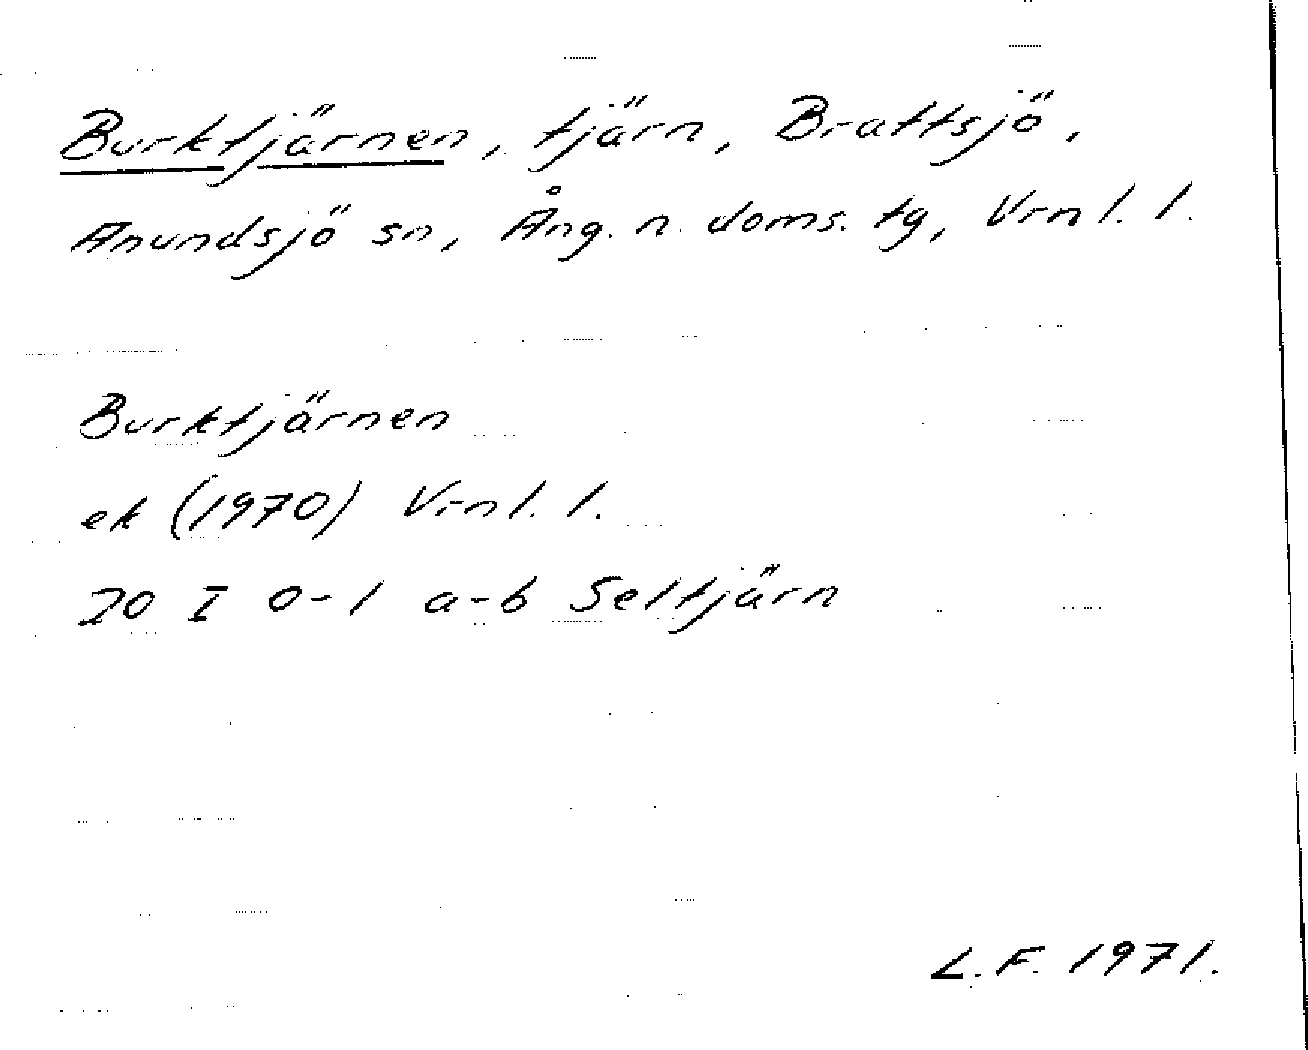 Burktjärnen, tjärn, Brattsjö,
Anundsjö sn, Ång. n. doms. tg, Vrnl. l.
Burktjärnen
ek (1970) Vrnl. l.
20 I 0-1 a-b Seltjärn
L.F. 1971.